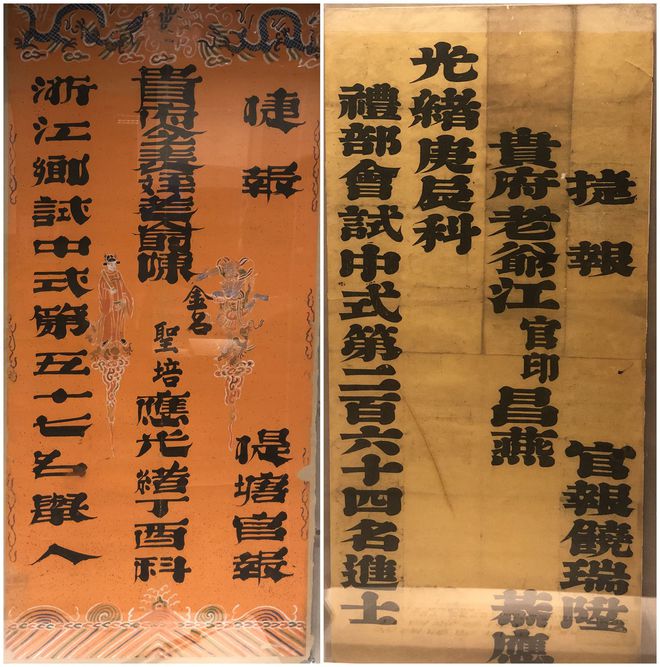 捷報 提塘官報
貴府令義姪老爺陳 金名 聖培 應光緒丁酉科
浙江鄉試中式第五十七名舉人
捷報 官報饒瑞陞
貴府老爺江官印昌燕 恭應
光緒庚辰科
禮部會試中式第二百六十四名進士